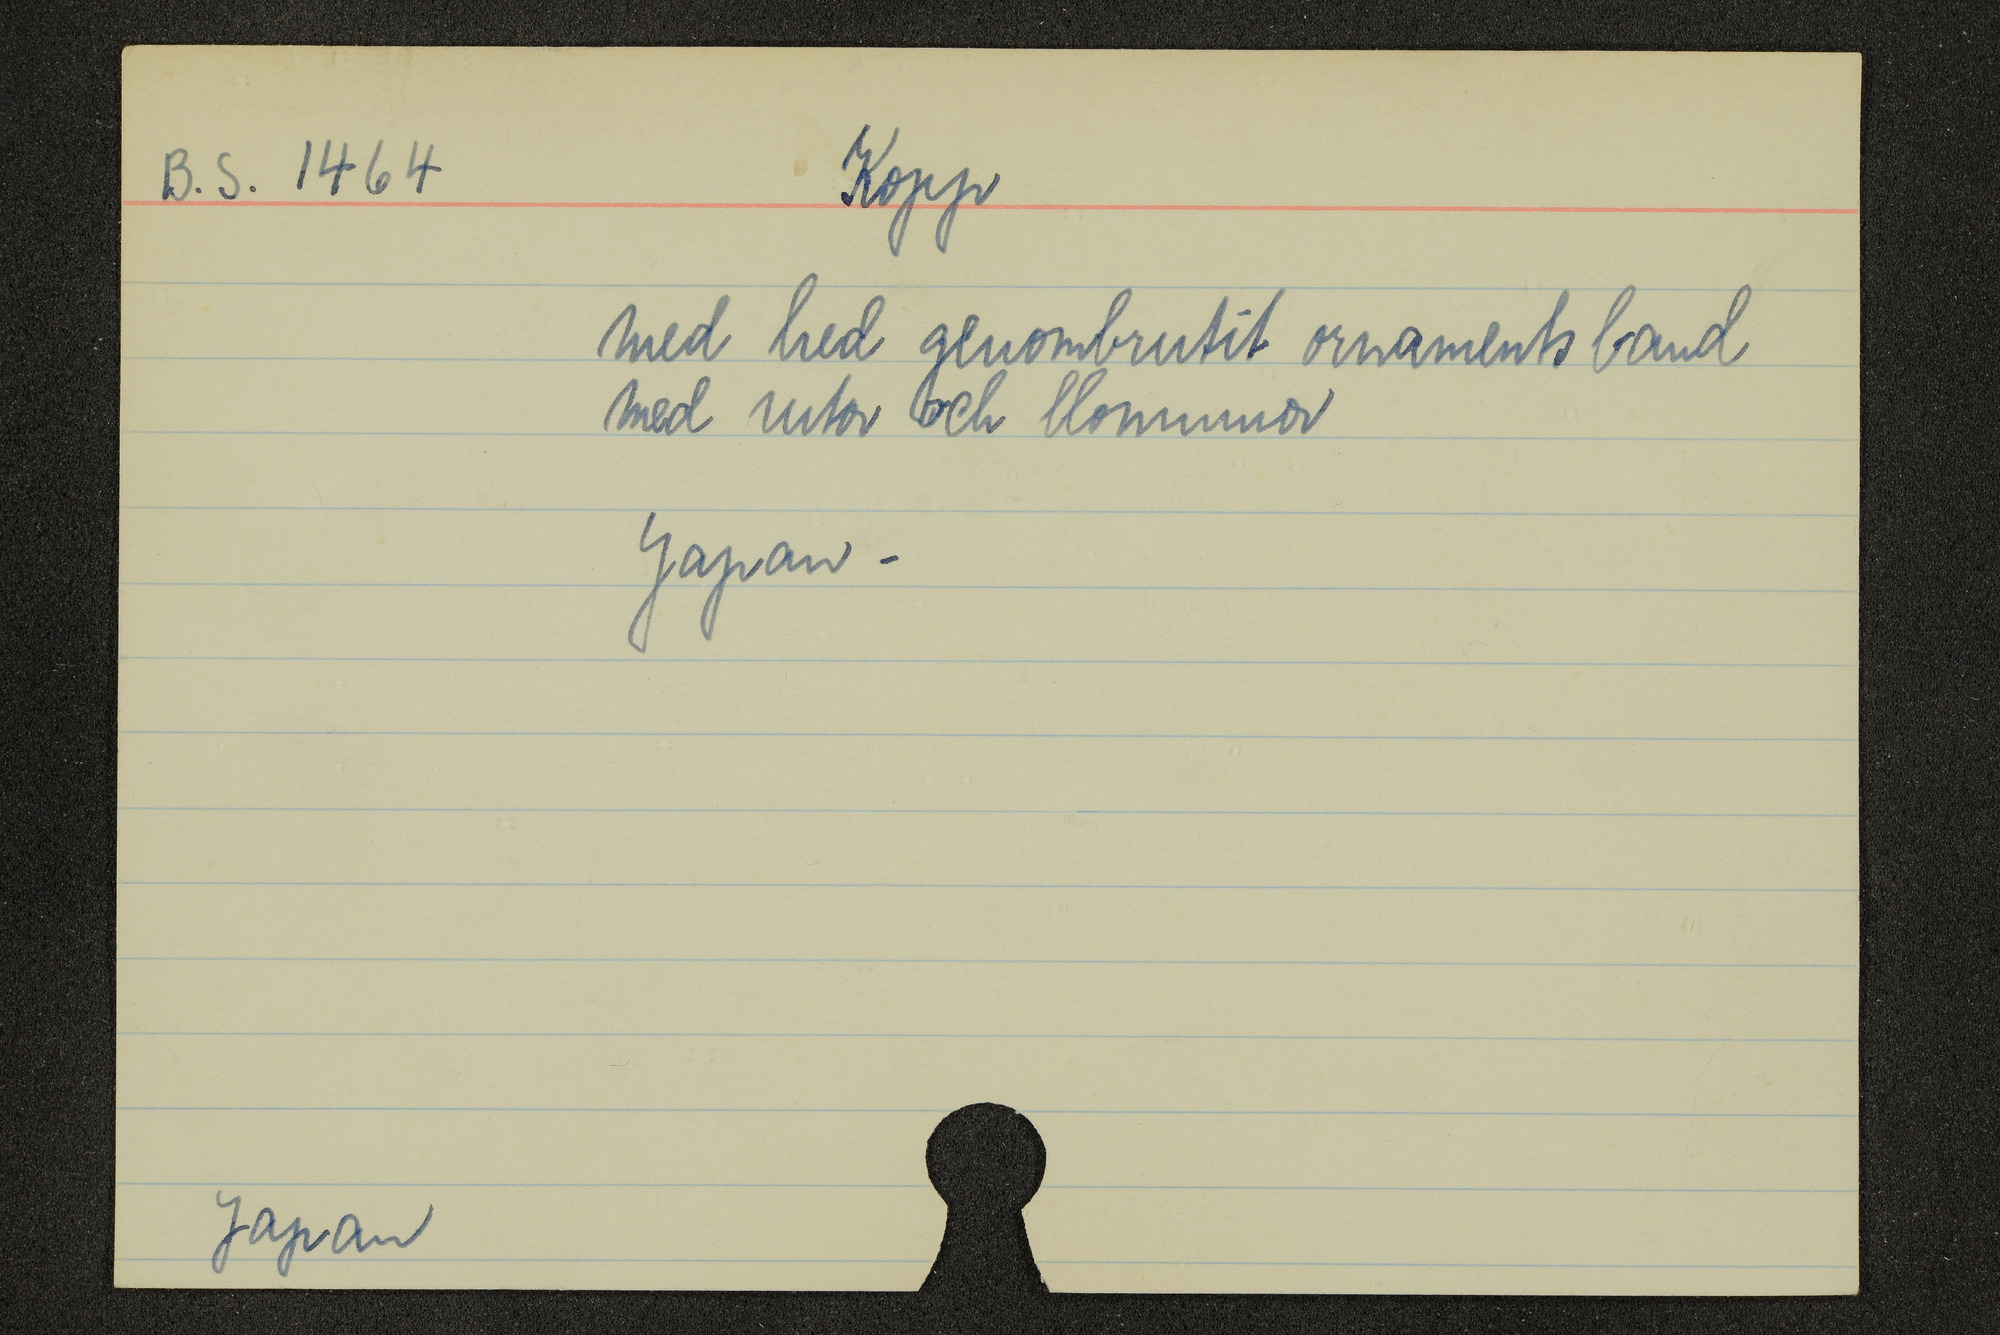 B.S. 1464 Kopp
med bred genombrutit ornamentsband
med rutor och blommor
Japan -
Japan